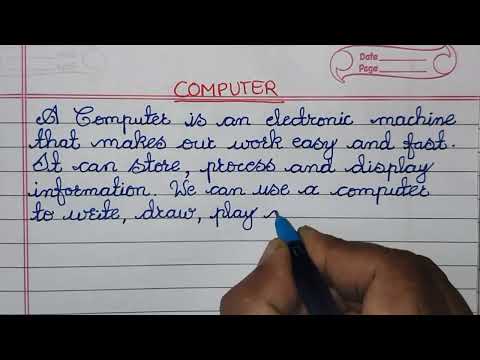 Date
Page
COMPUTER
A Computer is an electronic machine
that makes our work easy and fast.
It can store, process and display
information. We can use a computer
to write, draw, play